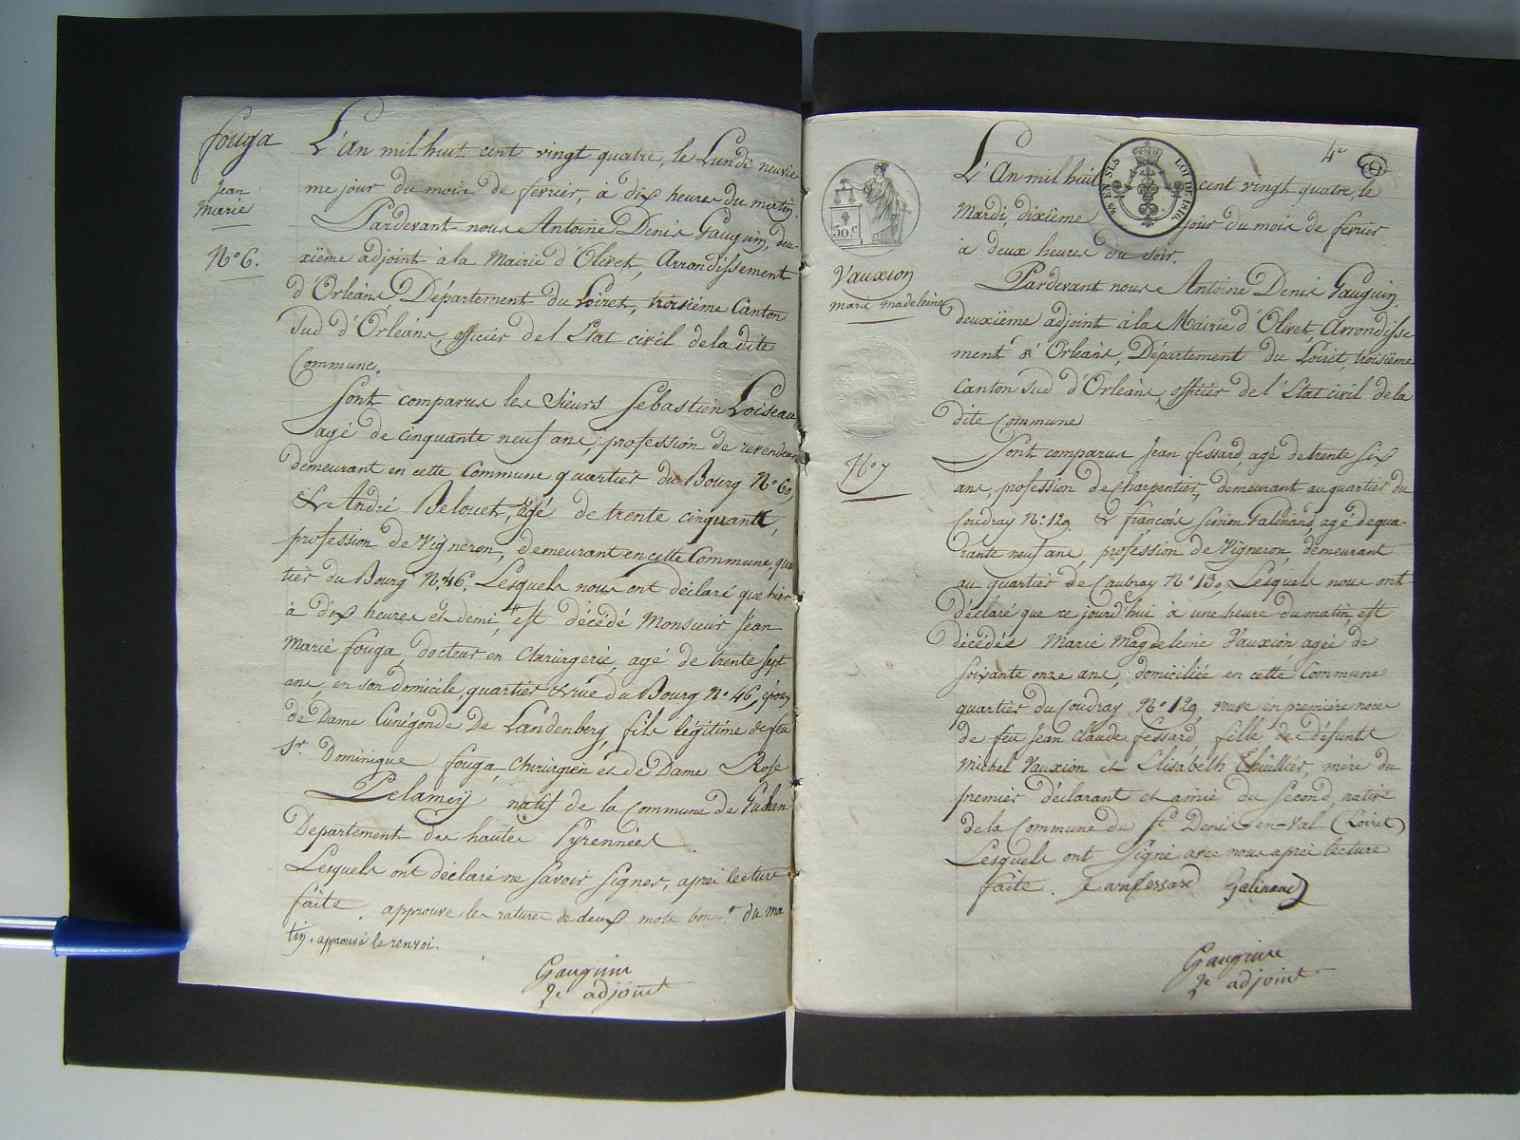 fouga
Jean
Marie
N.° 6.
L'An mil huit cent vingt quatre, le Lundi neuviè
me jour du mois de fevrier, à dix heures du matin.
Pardevant nous Antoine Denis Gauguin, deu-
xième adjoint à la Mairie d'Olivet, Arrondissement
d'Orléans, Département du Loiret, troisième Canton
Sud d'Orléans, officier de l'Etat civil de la dite
Commune,
Sont comparus les Sieurs Sebastien Loiseau
agé de cinquante neuf ans, profession de revendeur
demeurant en cette Commune quartier du Bourg N.° 60,
& Andrè Belouet, agé de trente cinquante,
profession de Vigneron, demeurant en cette Commune, quar
tier du Bourg N.° 46. Lesquels nous ont déclaré que hier
à dix heures et demi, est décédé Monsieur Jean
Marie fouga, docteur en Chirurgerie, agé de trente sept
ans, en son domicile, quartier & rue du Bourg N.° 46, époux
de Dame Cunégonde De Landenberg, fils légitime de feu
Sr. Dominique fouga, Chirurgien et de Dame Rose
Pelamey natif de la Commune de Guchen
Departement des hautes Pyrennées
Lesquels ont déclaré ne savoir signer, après lecture
faite. approuve les rature de deux mots bons. du ma
tin. approuvé le renvoi.
Gauguin
2e adjoint
4e
LOI DE 1816
50 c
Vauxion
marie madeleine
N.° 7
L'An mil huit cent vingt quatre, le
Mardi, dixième jour du mois de fevrier
à deux heures du soir.
Pardevant nous Antoine Denis Gauguin,
deuxième adjoint à la Mairie d'Olivet, Arrondisse
ment d'Orléans, Département du Loiret, troisième
Canton Sud d'Orléans, officier de l'Etat civil de la
dite Commune
Sont comparus Jean fessard, agé de trente six
ans, profession de Charpentier, demeurant au quartier du
Coudray N.° 129 & françois Galinard, agé de qua-
rante neuf ans, profession de Vigneron, demeurant
au quartier de Caubray N.° 130, Lesquels nous ont
déclaré que ce jourd'hui à une heure du matin, est
décédée Marie Magdeleine Vauxion agée de
soixante onze ans, domiciliée en cette Commune
quartier du Coudray N.° 129 veuve en premiere noce
de feu Jean Claude fessard fille de défunts
Michel Vauxion et Elisabeth Thuillier, mère du
premier déclarant et amie du second, native
de la Commune du St Denis-en-Val (Loiret)
Lesquels ont signé avec nous après lecture
faite. Jean fessard Galinard
Gauguin
2e adjoint